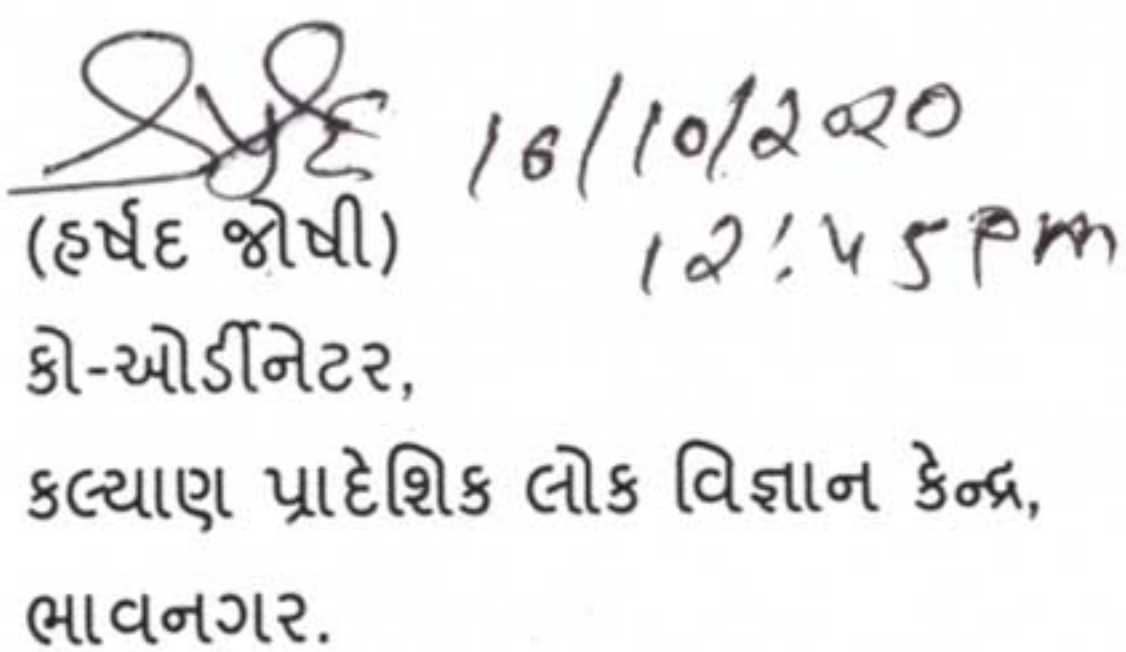 16/10/2020
12:45 pm
(હર્ષદ જોષી)
કો-ઓર્ડીનેટર,
કલ્યાણ પ્રાદેશિક લોક વિજ્ઞાન કેન્દ્ર,
ભાવનગર.